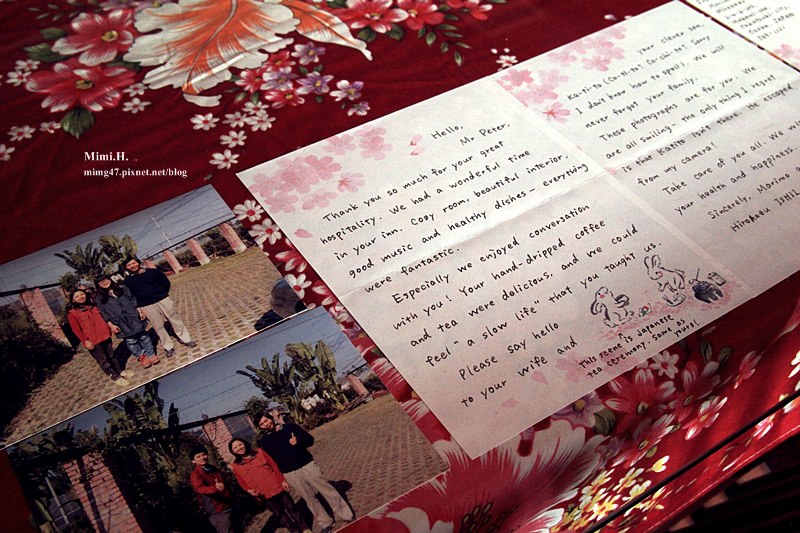 Mimi.H.
mimg47.pixnet.net/blog
Hello,
Mr Peter,
Thank you so much for your great
hospitality. We had a wonderful time
in your inn. Cozy room, beautiful interior,
good music and healthy dishes - everything
were fantastic.
Especially we enjoyed conversation
with you! Your hand-dripped coffee
and tea were delicious, and we could
feel "a slow life" that you taught us.
Please say hello
to your wife and
your clever son,
I don't know how to spell). We will
never forget your family.
These photographs are for you. We
are all smiling - the only thing I regret
is that Kaitito isn't there. He escaped
from my camera!
Take care of you all. We wi
your health and happiness.
Sincerely, Marimo a
Hirokazu ISHII
This scene is Japanese
tea ceremony, same as
yours!